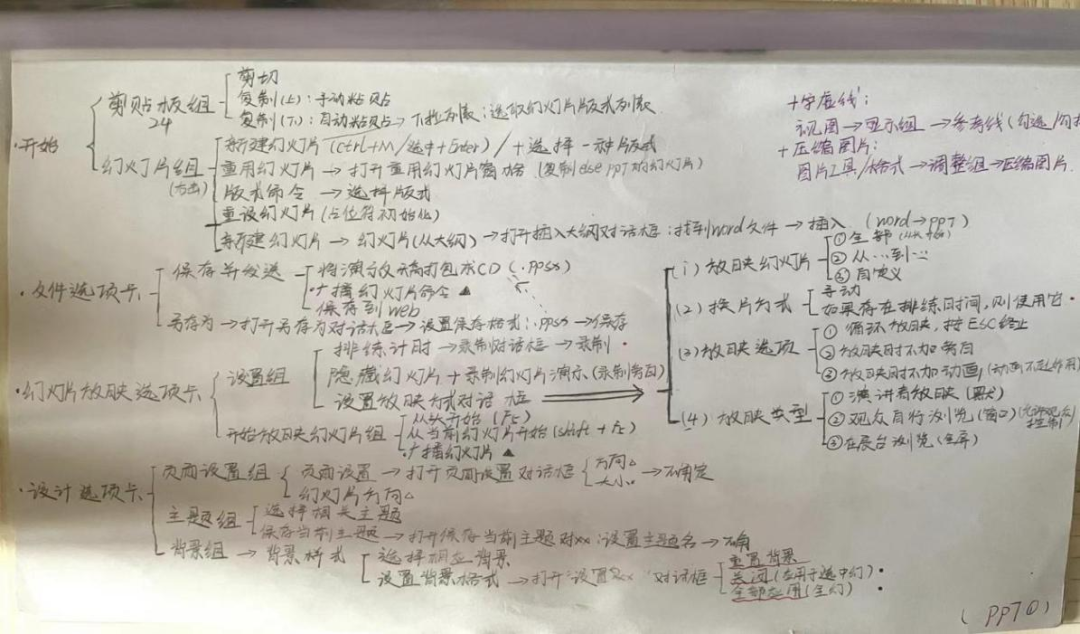 ·开始
剪贴板组
24
剪切
复制(上):手动粘贴
复制(下):自动粘贴→下拉列表:选取幻灯片版式列表
幻灯片组
(右击)
新建幻灯片(Ctrl+M/选中+Enter)/+选择一种版式
重用幻灯片→打开重用幻灯片窗格(复制else PPT的幻灯片)
版式命令→选择版式
重设幻灯片(占位符初始化)
新建幻灯片→幻灯片(从大纲)→打开插入大纲对话框:找到word文件→插入(word→PPT)
+字虚线:
视图→显示组→参考线(勾选/勾
+压缩图片:
图片工具/格式→调整组→压缩图片
·文件选项卡
保存并发送
将演示文稿打包成CD(.ppsx)
·广播幻灯片命令▲
保存到web
另存为→打开另存为对话框→设置保存格式:.ppsx→保存
·幻灯片放映选项卡
设置组
排练计时→录制对话框→录制·
隐藏幻灯片+录制幻灯片演示(录制旁白)
设置放映方式对话框
开始放映幻灯片组
从头开始(F5)
从当前幻灯片开始(shift+F5)
·广播幻灯片▲
(1)放映幻灯片
①全部
②从…到…
③自定义
(2)换片方式
手动
如果存在排练时间,则使用它·
(3)放映选项
①循环放映,按ESC终止
②放映时不加旁白
③放映时不加动画,(动画不起作用)
(4)放映类型
①演讲者放映(默认)
②观众自行浏览(窗口)(允许观众控制)
③在展台浏览(全屏)
·设计选项卡
页面设置组
页面设置→打开页面设置对话框
方向△
大小
→确定
幻灯片方向△
主题组
选择相关主题
保存当前主题→打开保存当前主题对xx:设置主题名→确
背景组→背景样式
选择相应背景
设置背景格式→打开"设置xx"对话框
重置背景
关闭(应用于选中幻)·
全部应用(全幻)·
(PPT①)